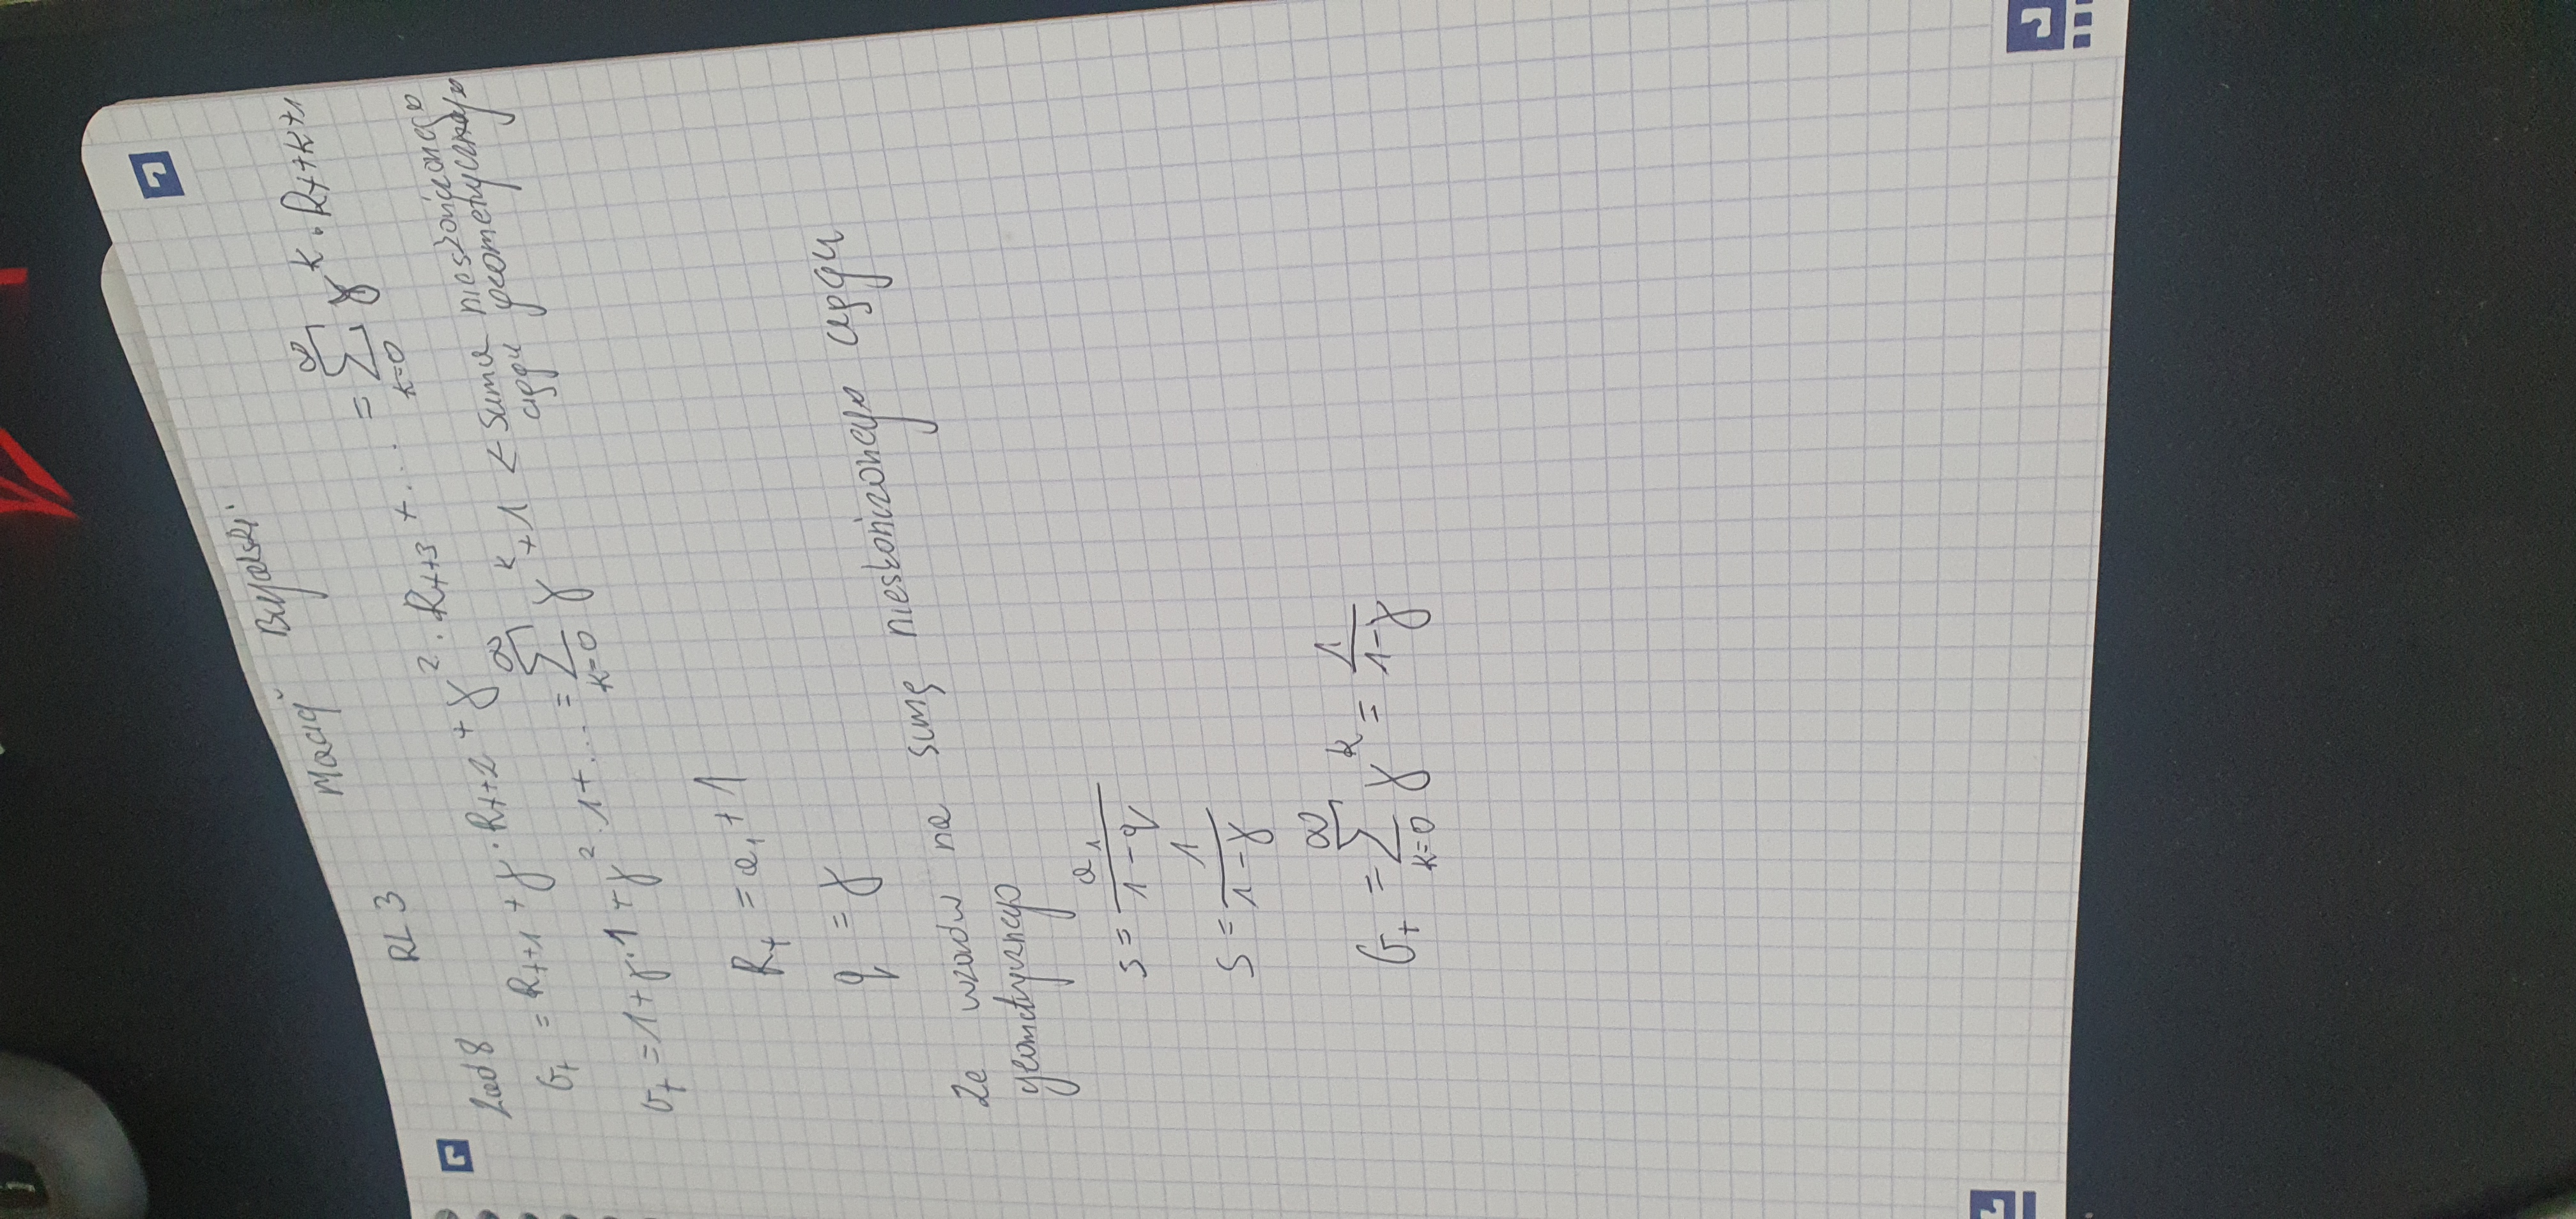 Maciej Bujalski
RL 3
Zad 8
G_t = R_{t+1} + γ · R_{t+2} + γ^2 · R_{t+3} + ... = ∑_{k=0}^{∞} γ^k · R_{t+k+1}
G_t = 1 + γ·1 + γ^2·1 + ... = ∑_{k=0}^{∞} γ^k + 1 < suma nieskończonego
ciągu geometrycznego
R_t = a_1 + 1
q = γ
Ze wzorów na sumę nieskończonego ciągu
geometrycznego
S = a_1 / (1 - q)
S = 1 / (1 - γ)
G_t = ∑_{k=0}^{∞} γ^k = 1 / (1 - γ)